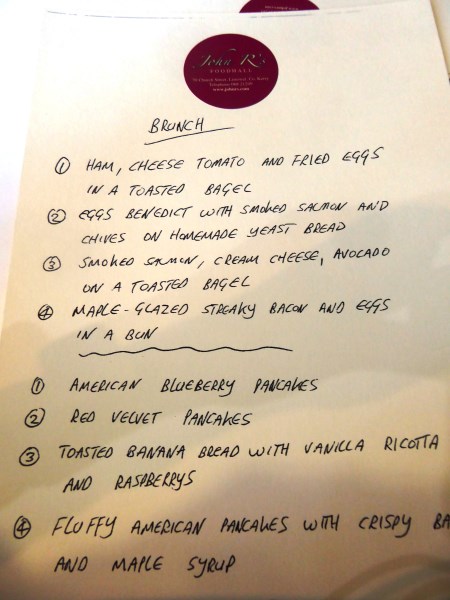 John R's
FOODHALL
www.johnrs.com
BRUNCH
① HAM, CHEESE TOMATO AND FRIED EGGS
IN A TOASTED BAGEL
② EGGS BENEDICT WITH SMOKED SALMON AND
CHIVES ON HOMEMADE YEAST BREAD
③ SMOKED SALMON, CREAM CHEESE, AVOCADO
ON A TOASTED BAGEL
④ MAPLE-GLAZED STREAKY BACON AND EGGS
IN A BUN
① AMERICAN BLUEBERRY PANCAKES
② RED VELVET PANCAKES
③ TOASTED BANANA BREAD WITH VANILLA RICOTTA
AND RASPBERRYS
④ FLUFFY AMERICAN PANCAKES WITH CRISPY BA
AND MAPLE SYRUP